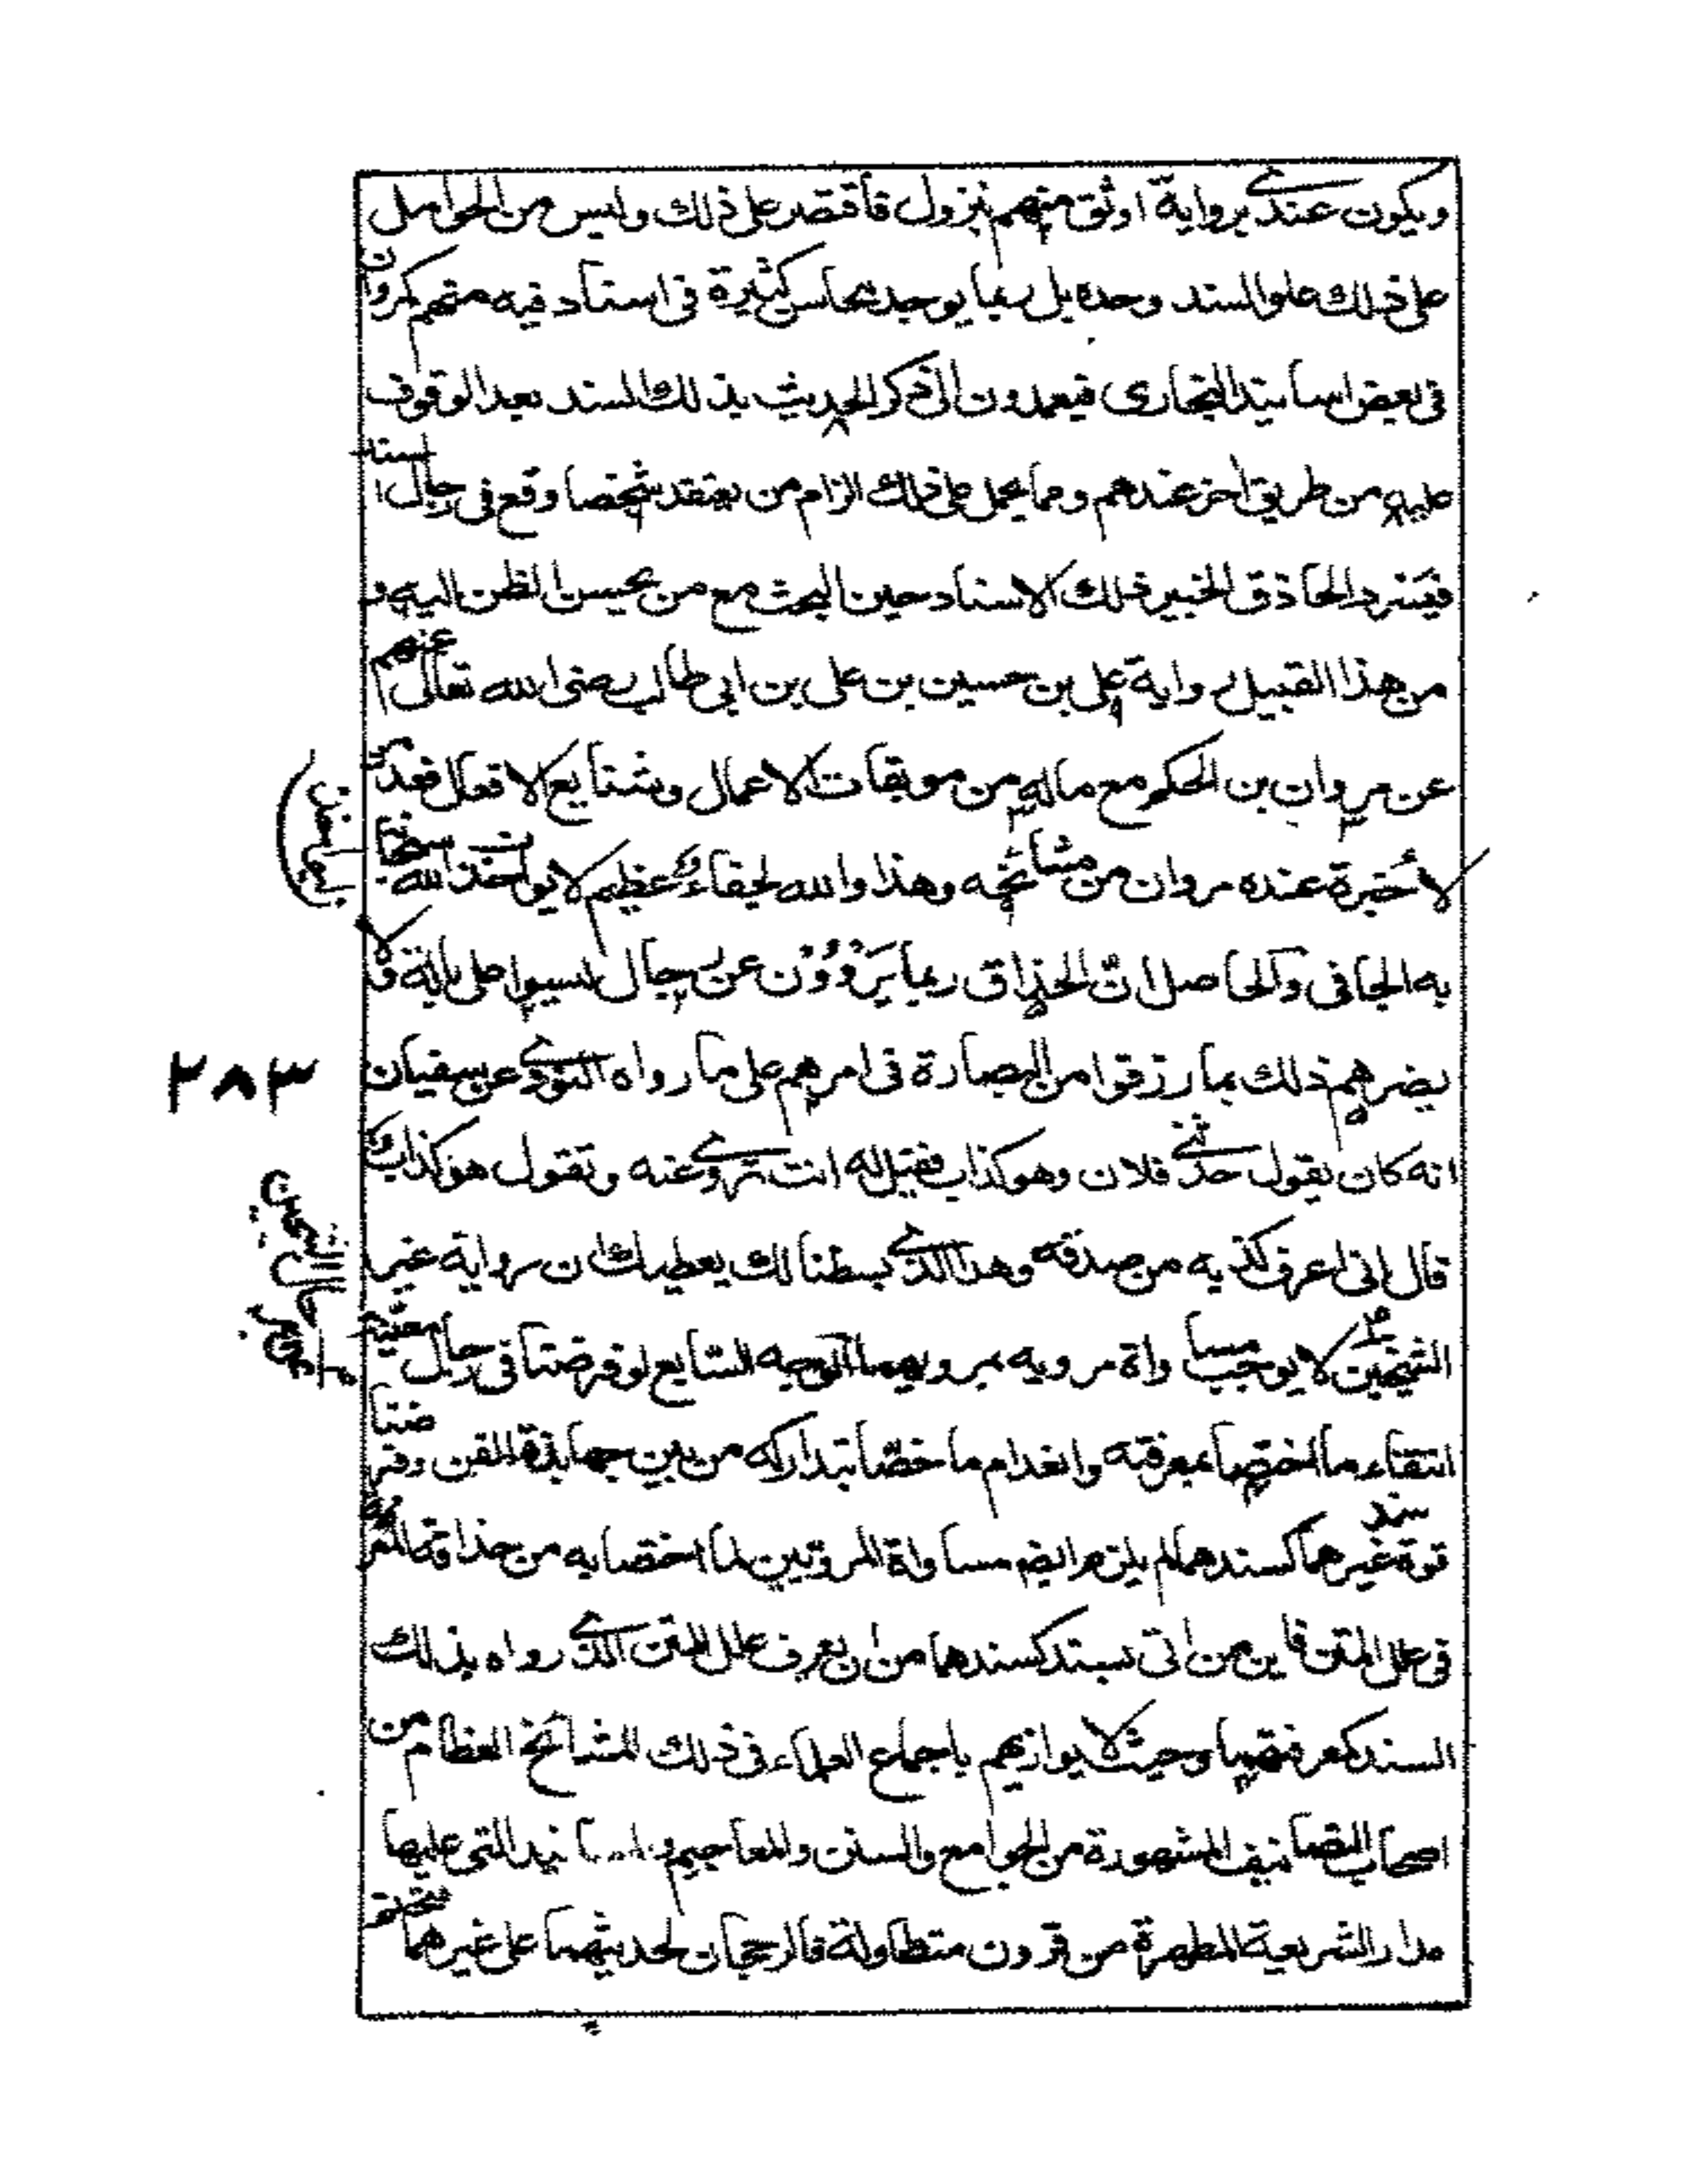 ويكون عندي برواية اوثق منهم بنزول فأقتصر على ذلك وليس من الحوامل
على ذلك علو السند وحده بل ربما يوجد محاسن كثيرة في اسناد فيه متهم كمروان
في بعض اسانيد البخاري فيعمدون الى ذكر الحديث بذلك السند بعد الوقوف
عليه من طريق اخر عندهم ومما يحمل على ذلك الزام من يعتقد شخصا وقع في رجال اسناد
فيسرد الحاذق الخبير ذلك الاسناد حين البحث مع من يحسن الظن اليه و
من هذا القبيل رواية علي بن حسين بن علي بن ابي طالب رضى الله تعالى عنهم
عن مروان بن الحكم مع ماله من موبقات الاعمال وشنايع الافعال فعد من
لا خبرة عنده مروان من مشائخه وهذا والله لجفاء عظيم لا يواخذ الله
به الجافي والحاصل ان الحذاق ربما يروون عن رجال ليسوا على بالة ولا
يضرهم ذلك بما رزقوا من البصارة في امرهم على ما رواه الثوري عن سفيان
انه كان يقول حدثني فلان وهو كذاب فقيل له انت تروي عنه وتقول هو كذاب
قال اني اعرف كذبه من صدقه وهذا الذي بسطنا لك يعطيك ان رواية غير
الشيخين لا يوجب مساواة مرويه بمرويهما لوجه الشايع لو فرضنا في رجال معينة
انتفاء ما اختصا بمعرفته وانعدام ما خصا بتداركه من بين جهابذة الفن وفرضنا
قوة سند غيرهما كسندهما لم يلزم ايضم مساواة المرويين لما اختصا به من حذاقة
في علل المتن فاين من اتى بسند كسندهما من ان يعرف علل المتن الذي رواه بذلك
السند كمعرفتهما وحيث لا يوازيهم باجماع العلماء في ذلك المشائخ العظام من
اصحاب التصانيف المشهورة من الجوامع والسنن والمعاجيم والمسانيد التي عليها
مدار الشريعة المطهرة من قرون متطاولة فالرجحان لحديثهما على غيرهما
٢٨٣